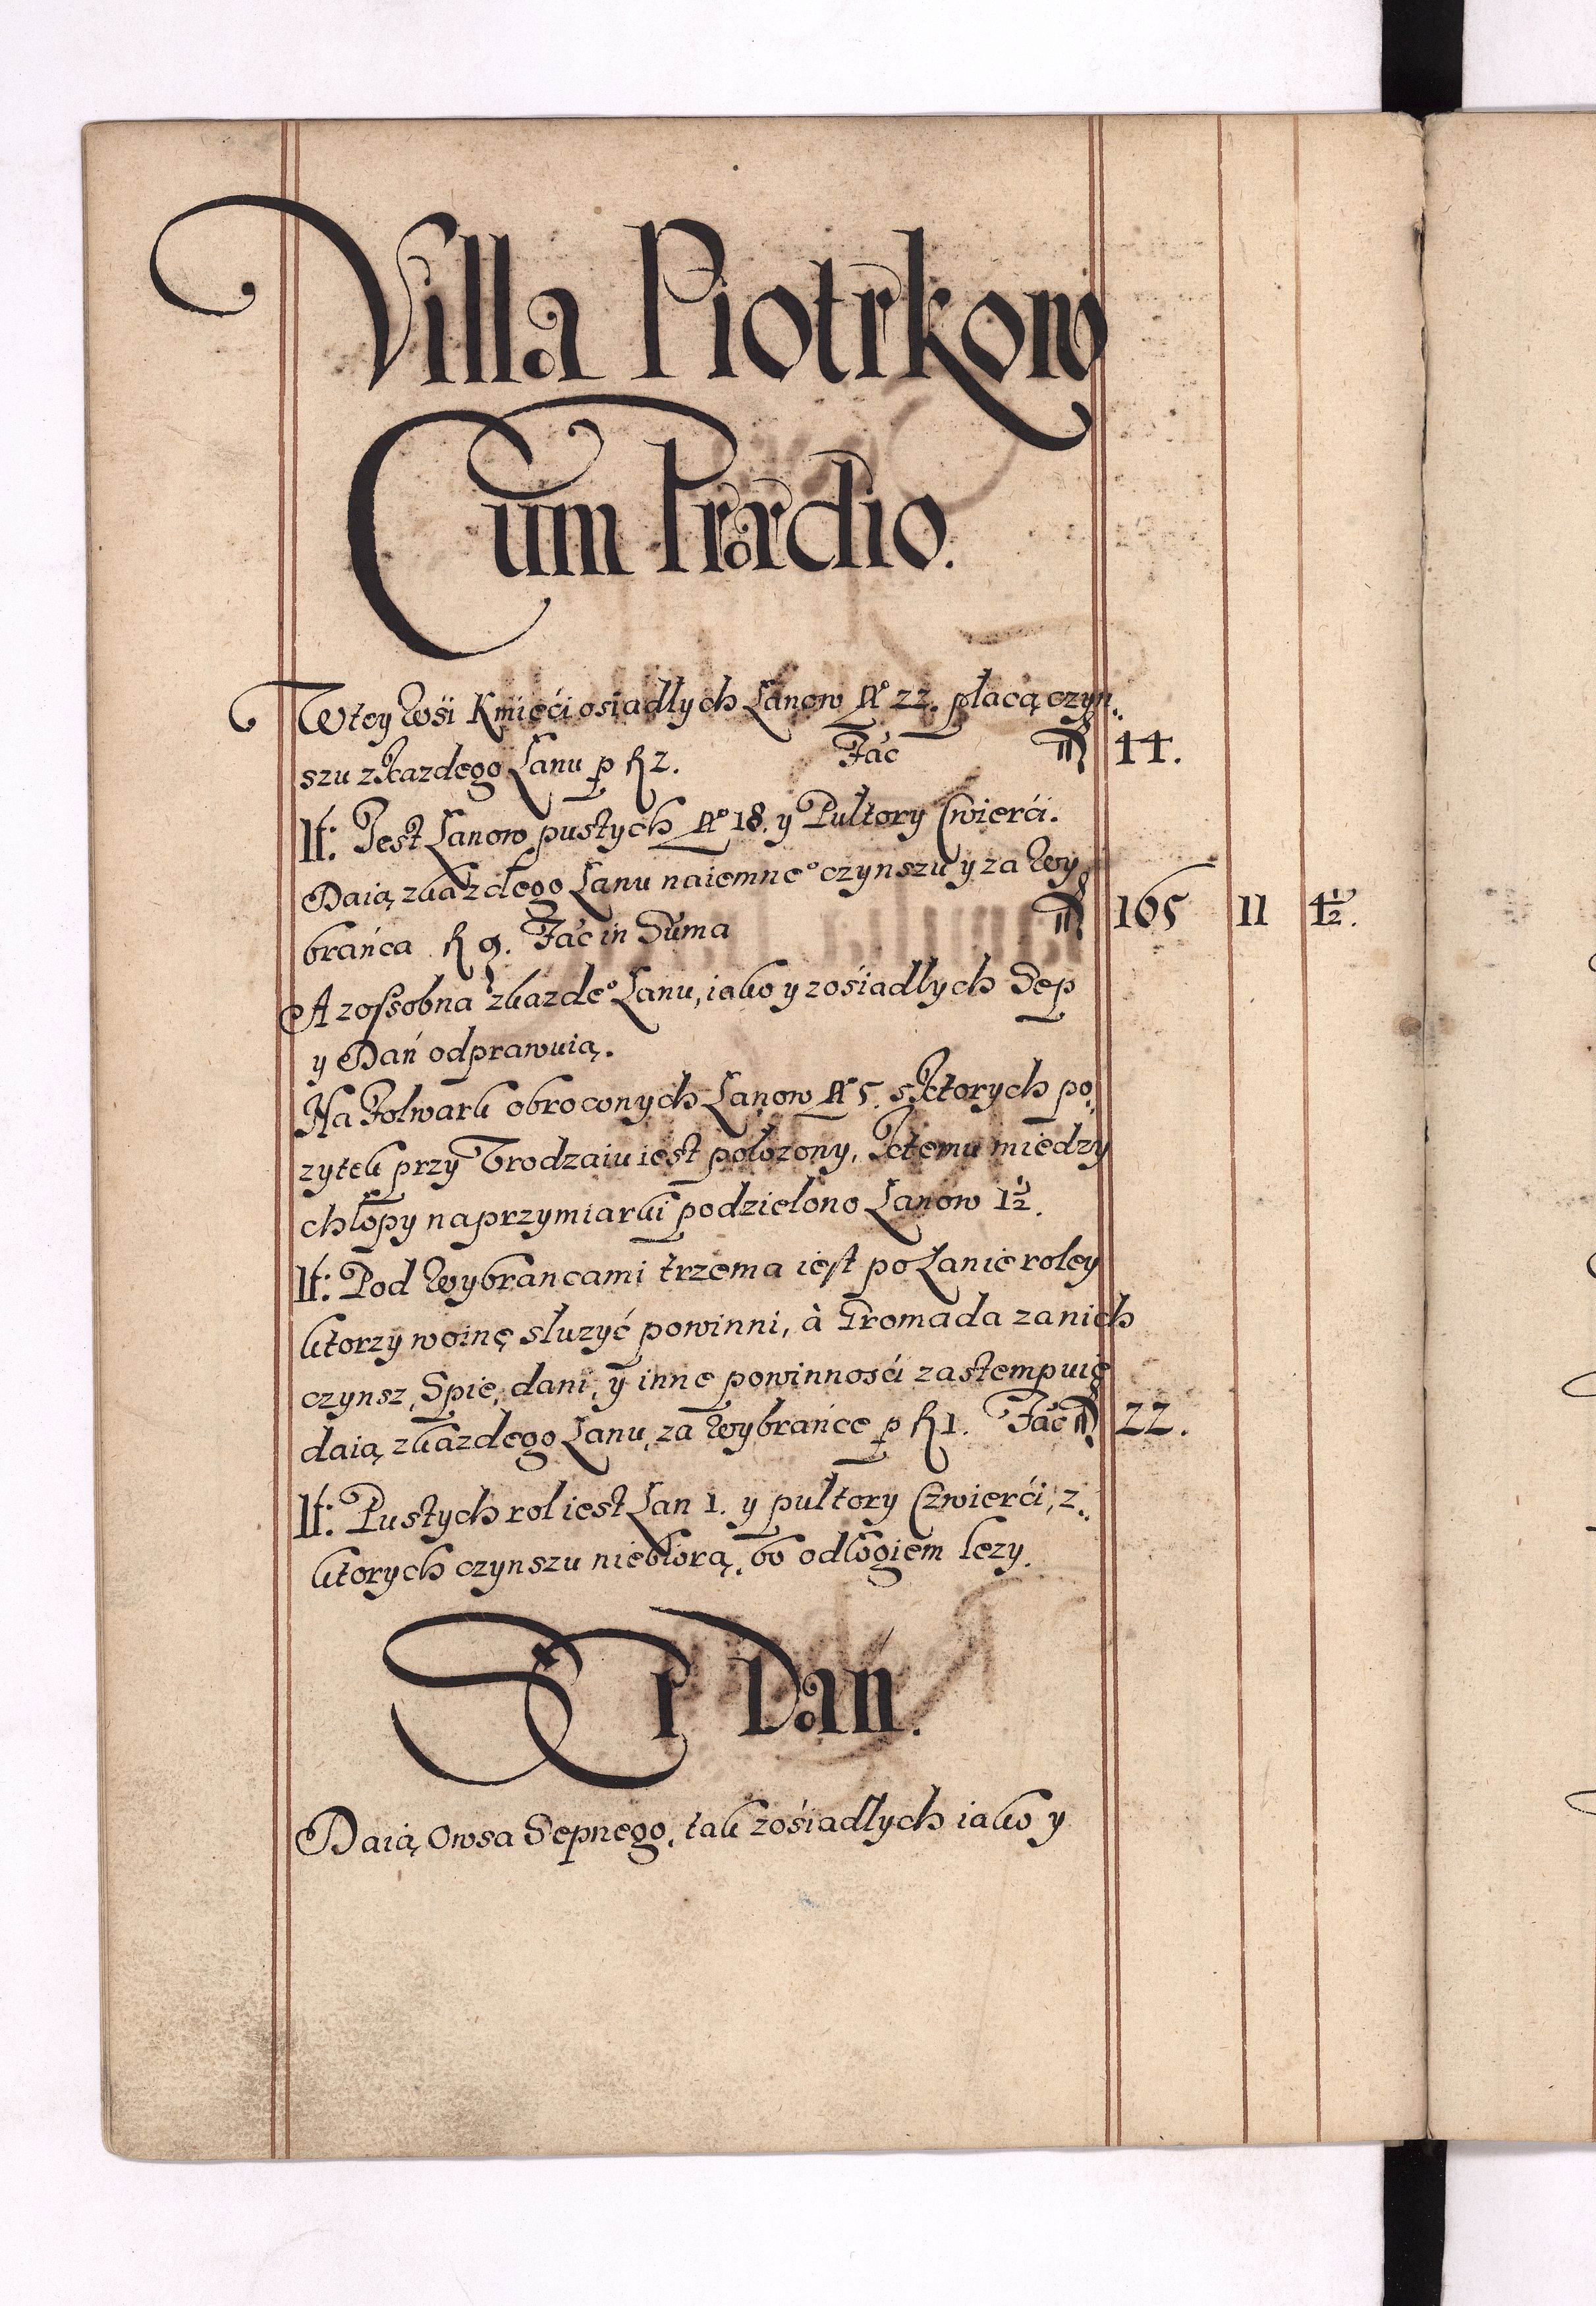 Villa Piotrkow
Cum Prædio.
W tey Wsi Kmieći osiadłych Łanow No 22. płacą czyn-
szu z kazdego Łanu p fl 2. Fác fl 44.
It: Jest Łanow pustych No 18. y Pułtory Cwierći.
Daią z kazdego Łanu naiemneo czynszu y za Wy
brańca fl 9. Fác in Suma fl 165 11 4½.
A zossobna z kazdeo Łanu, iako y z ośiadłych Sep
y Dań odprawuią.
Na Folwark obroconych Łanow No 5. s ktorych po-
zytek przy Vrodzaiu iest położony, K temu miedzy
chłopy na przymiarki podzielono Łanow 1½.
It: Pod Wybrancami trzema iest po Łanie roley
ktorzy woinę słuzyć powinni, à Gromada za nich
czynsz, Spie, dani, y inne powinnosći zastempuię
daią z kazdego Łanu, za Wybrańce p fl 1. Fác fl 22.
It: Pustych rol iest Łan 1. y pułtory Czwierći, z-
ktorych czynszu niebiorą, bo odłogiem lezy.
Sep Dan.
Daią Owsa Sepnego, tak z ośiadłych iako y